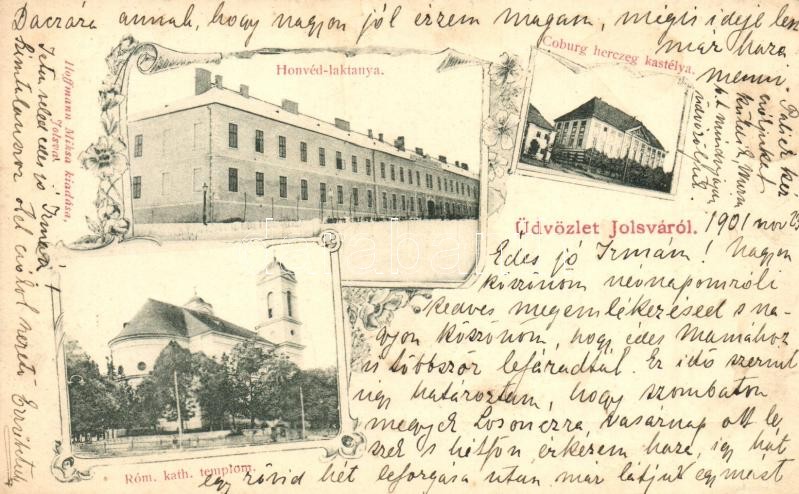 Daczára annak, hogy nagyon jól érzem magam, mégis ideje len
már haza
menni.
Honvéd-laktanya.
Coburg herczeg kastélya.
Hoffmann Miksa kiadása, Jolsva.
Üdvözlet Jolsváról. 1901 nov 25
Édes jó Irmám! Nagyon
köszönöm névnapomróli
kedves megemlékezésed s na-
gyon köszönöm, hogy édes Mamához
is többször lefáradtál. Ez idő szerint
úgy határoztam, hogy szombaton
megyek Losonczra, vasárnap ott le-
szek s hétfőn érkezem haza, így hát
egy rövid hét leforgása után már látjuk egymást
Róm. kath. templom.
Isten veled édes Irmám!
Számtalanszor ölel csókol szerető Erzsikéd